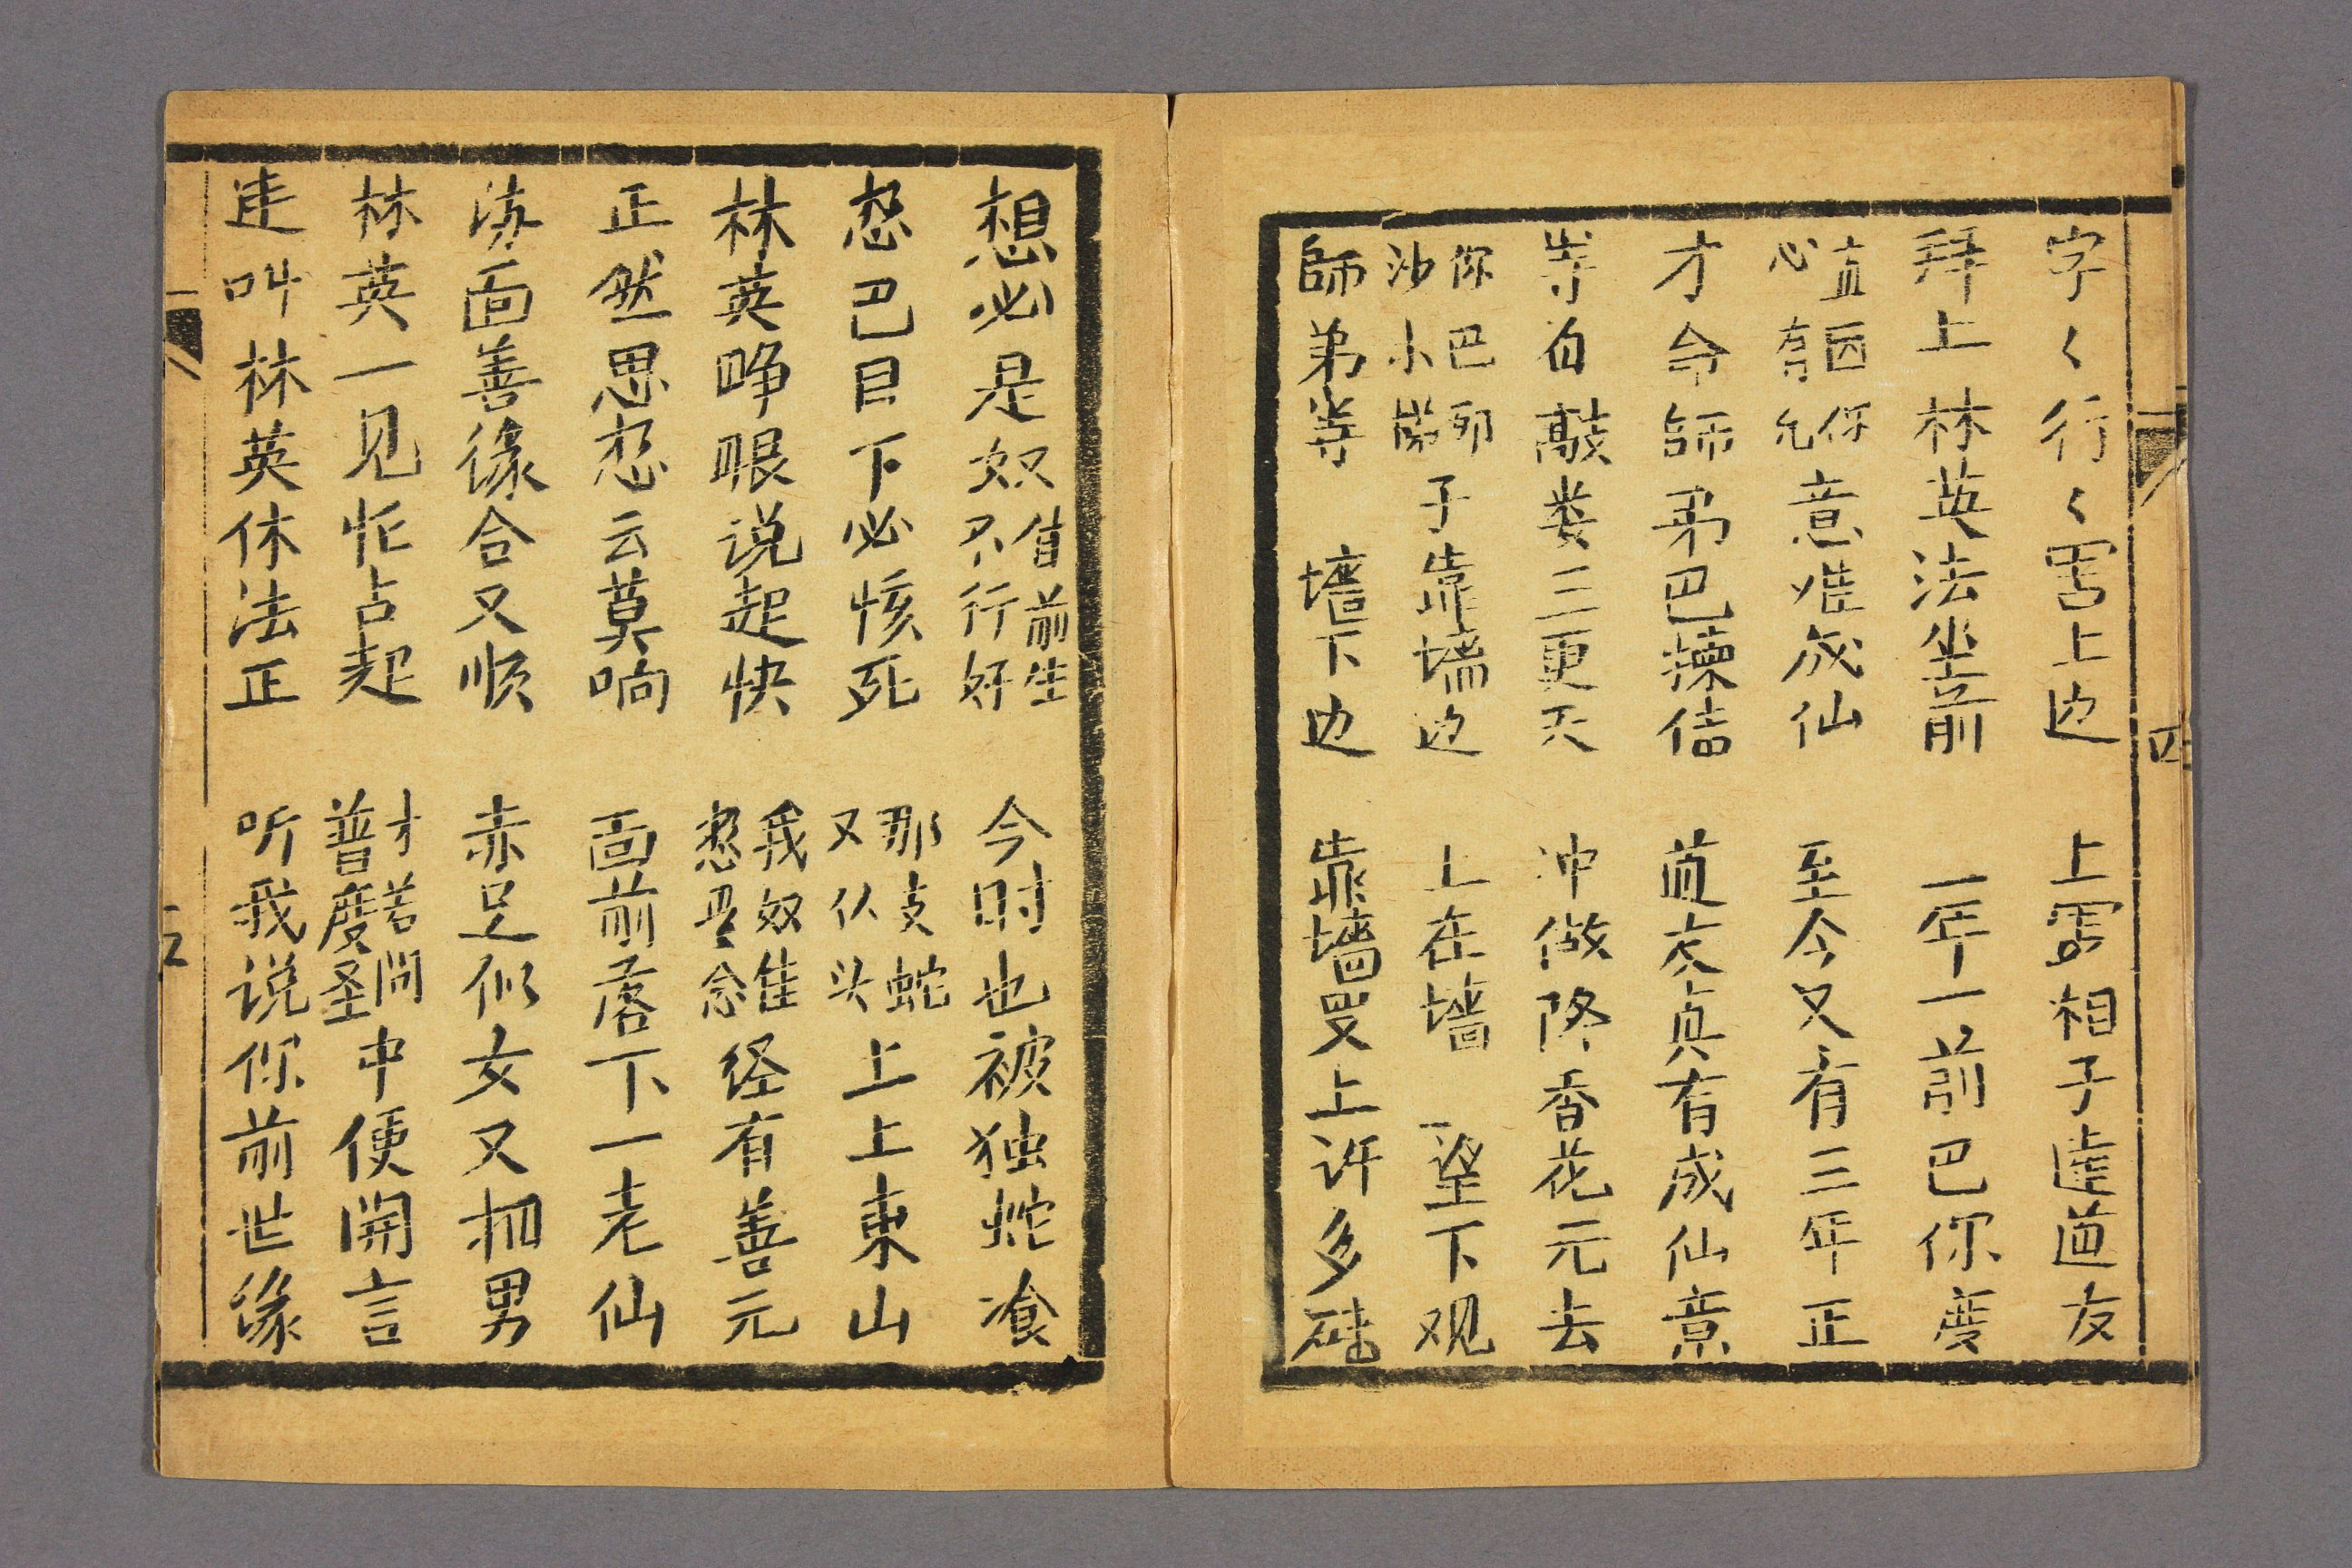 字〻行〻雲上边　上雲相子達道友
拜上林英法坐前　一年一前巴你度
直因你心有允意难成仙　至今又有三年正
才命師弟巴揀信　道衣真有成仙意
岑自敲娄三更天　冲做降香花元去
你巴列沙小岩子靠墙边　上在墙一望下观
師弟等　墙下边　靠墙叟上许多砖
四
想必是奴前生不行好　今时也被独蛇飡
忍巴目下必恢死　那支蛇又仈头上上東山
林英睁眼说起快　我奴隹愁是念经有善元
正然思忍云莫响　面前落下一老仙
法面善缘合又顺　赤足似女又相男
林英一见忙占起　才若问普度圣中便開言
连叫林英休法正　听我说你前世缘